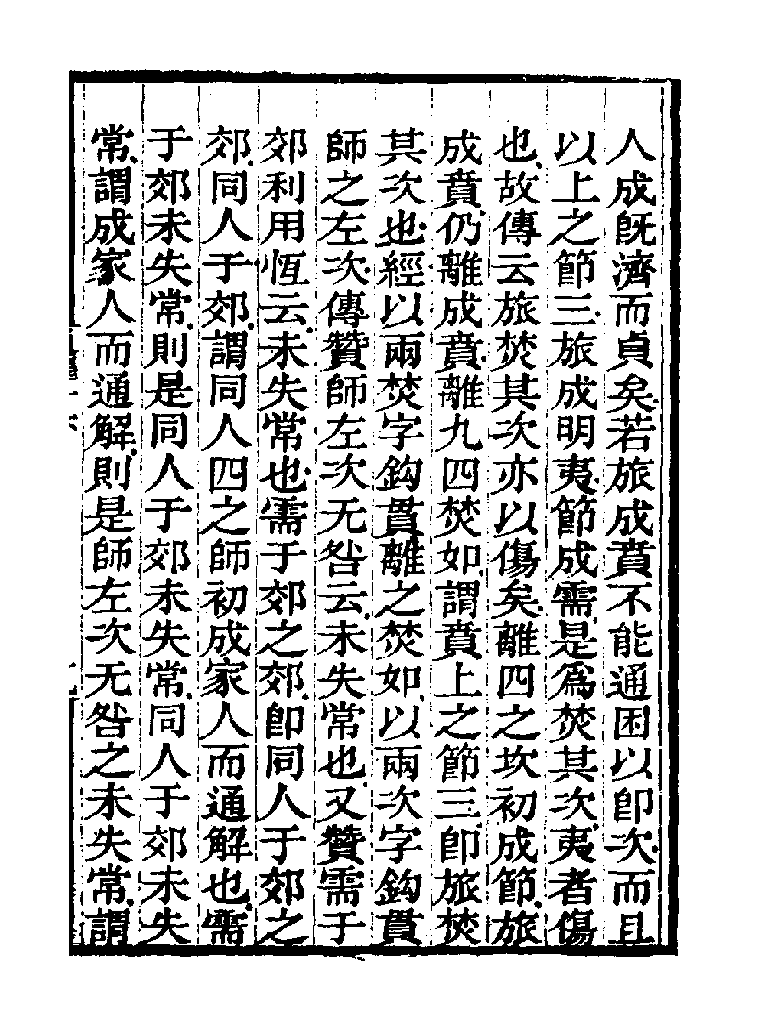 人成既濟而貞矣若旅成賁不能通困以卽次而且
以上之節三旅成明夷節成需是爲焚其次夷者傷
也故傳云旅焚其次亦以傷矣離四之坎初成節旅
成賁仍離成賁離九四焚如謂賁上之節三卽旅焚
其次也經以兩焚字鈎貫離之焚如以兩次字鈎貫
師之左次傳贊師左次无咎云未失常也又贊需于
郊利用恆云未失常也需于郊之郊卽同人于郊之
郊同人于郊謂同人四之師初成家人而通解也需
于郊未失常則是同人于郊未失常同人于郊未失
常謂成家人而通解則是師左次无咎之未失常謂